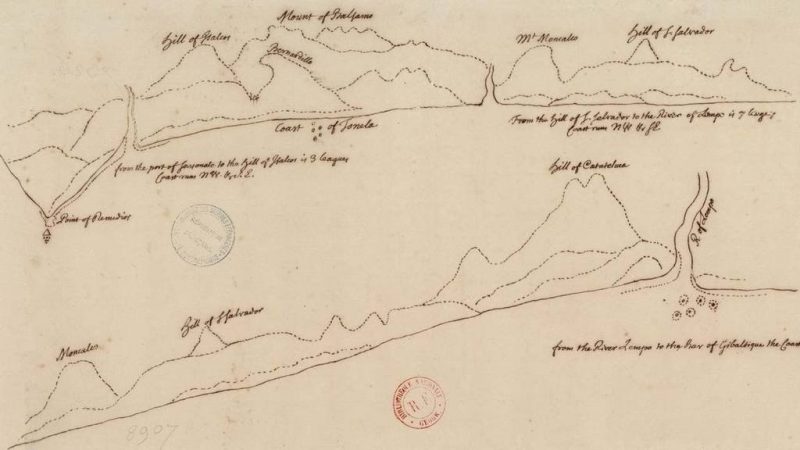 Mount of Balsamo
Hill of Isalcos
Bernardillo
Mt. Moncales
Hill of S. Salvador
Coast of Tonela
From the Hill of S. Salvador to the River of Lempo is 7 leages
Coast runs NW & SE
from the port of to the Hill of Isalcos is 3 leagues
Coast runs NW & S.E.
Point of Remedios
Hill of Catatelua
R of Lempo
Hill of S Salvador
Moncales
from the River Lempo to the Bar of Gibaltique the Coast
BIBLIOTHEQUE NATIONALE
R F
8907